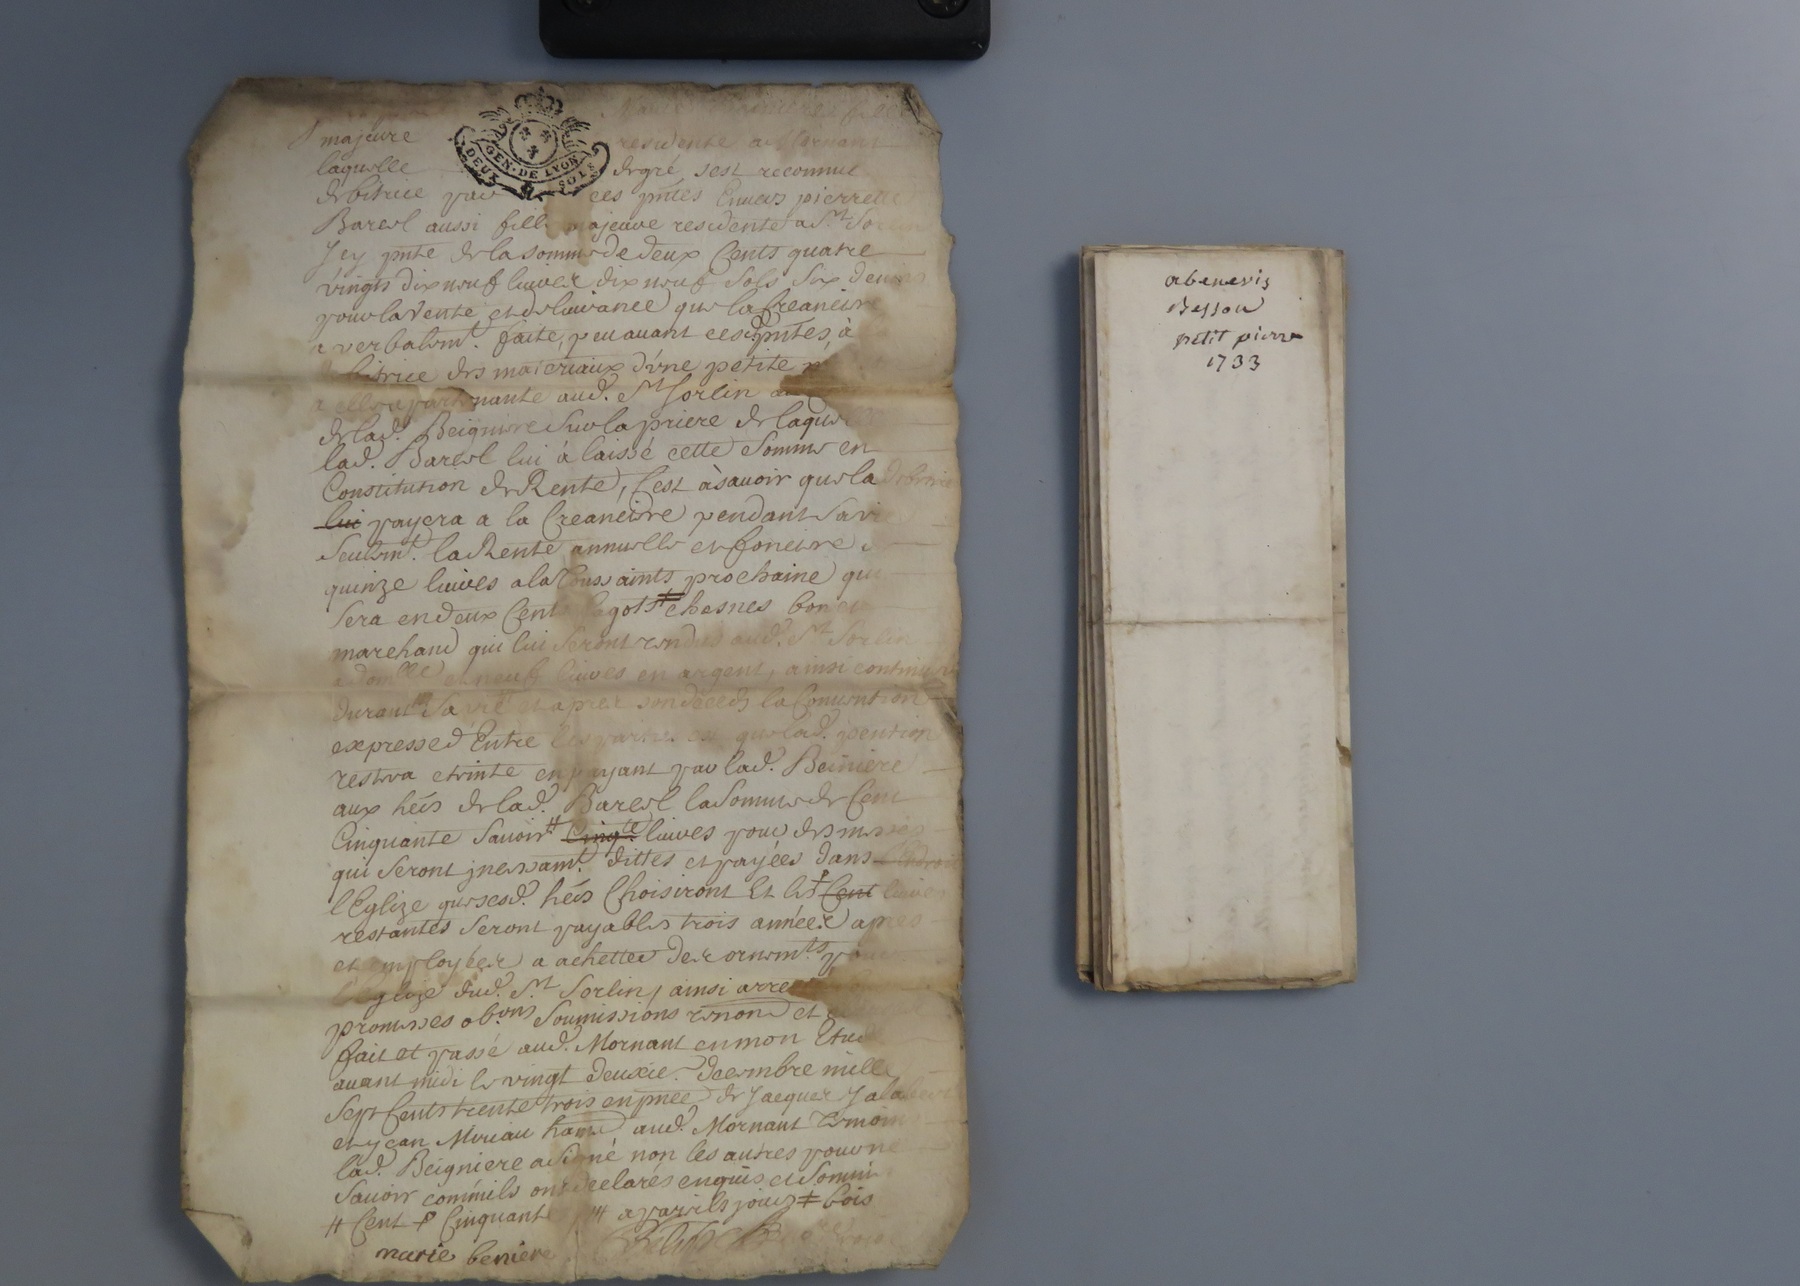 majeure residente a Mornant
laquelle de gré s'est reconnue
debitrice par ces pntes Envers pierrette
GEN. DE LYON
DEUX SOLS
Barel aussi fille majeure residente a St Sorlin
Jcy pnte de la somme de deux Cents quatre
vingts dix neuf livres dix neuf sols six deniers
pour la vente et delivrance que la Creanciere
a verbalemt. faite, peu avant ces pntes, à la
debitrice des materiaux d'une petite
a elle apartenante aud. St Sorlin
de lad. Beigniere Sur la priere de laquelle
lad. Barel lui à laissé cette Somme en
Constitution de Rente, C'est à savoir que la debitrice
lui payera a la Creanciere pendant sa vie
seulemt. la Rente annuelle et fonciere
quinze livres a la Toussaints prochaine qui
sera en deux Cents fagots ǂ chesnes bon et
marchand qui lui seront rendus aud. St Sorlin
a domlle et neuf livres en argent, ainsi continuer
durant sa vie et aprez son deceds la Convention
expresse Entre les parties est que lad. pention
restera eteinte en payant par lad. Beiniere
aux hérs de lad. Barel la somme de Cent
Cinquante savoir # Cinqte livres pour des messes
qui seront incessamt. dittes et payées dans l'Endroit
l'Eglize que sesd. hérs Choisiront Et les ⳨ Cent livres
restantes seront payables trois années apres
et employéez a achetter dez ornemts. pour
l'Eglize dud. St Sorlin, ainsi arresté
promesses obons soumissions renond et
fait et passé aud. Mornant en mon Etude
avant midi le vingt deuxie. decembre mille
sept Cents trente trois en pnce de Jacques Jalabert
et jean Moriau hants aud. Mornant Temoins
lad. Beigniere a signé non les autres pour ne
savoir comm'ils ont declarés enquis et sommés
# Cent ⳨ Cinquante a pareils jours ǂ bois
marie beniere
abenevis
Besson
petit pierre
1733